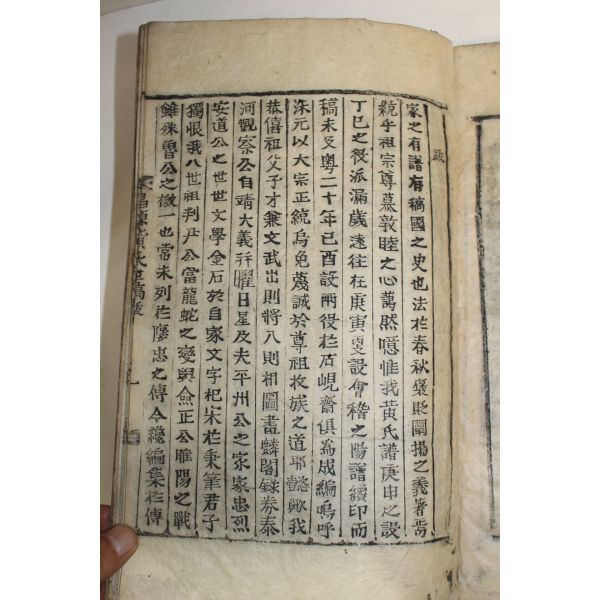 跋
家之有譜有稿國之史也法於春秋褒貶闡揚之義著焉
統乎祖宗尊慕敦睦之心萬然噫惟我黃氏譜庚申之設
丁巳之役派漏歲遠往在庚寅更設會稽之陽譜綴印而
稿未及粤二十年己酉設兩役於石峴齋俱爲成編嗚呼
洙元以大宗正統烏免蔑誠於尊祖收族之道耶懿歟我
恭僖祖父子才兼文武出則將入則相圖畫麟閣錄券泰
河觀察公自靖大義幷曜日星及夫平州公之家家忠烈
安道公之世世文學金石於自家文字杞宋於秉筆君子
獨恨我八世祖判尹公當龍蛇之變與僉正公睢陽之戰
雖殊魯公之檄一也常未列於塵忠之傳今纔編集於傳
昌原黃氏世稿跋
一